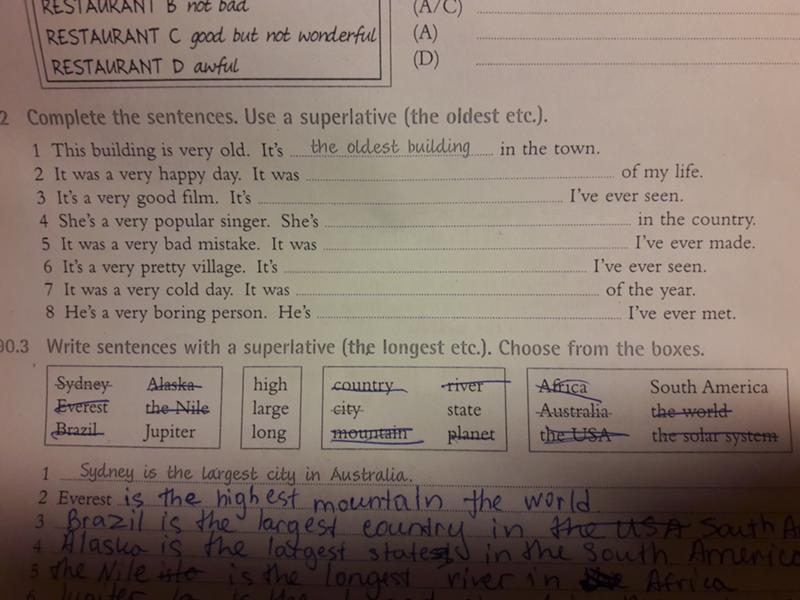 RESTAURANT B not bad
RESTAURANT C good but not wonderful
RESTAURANT D awful
(A/C)
(A)
(D)
2 Complete the sentences. Use a superlative (the oldest etc.).
1 This building is very old. It's the oldest building in the town.
2 It was a very happy day. It was of my life.
3 It's a very good film. It's I've ever seen.
4 She's a very popular singer. She's in the country.
5 It was a very bad mistake. It was I've ever made.
6 It's a very pretty village. It's I've ever seen.
7 It was a very cold day. It was of the year.
8 He's a very boring person. He's I've ever met.
90.3 Write sentences with a superlative (the longest etc.). Choose from the boxes.
Sydney Alaska high country river Africa South America
Everest the Nile large city state Australia the world
Brazil Jupiter long mountain planet the USA the solar system
1 Sydney is the largest city in Australia.
2 Everest is the highest mountain the world
3 Brazil is the largest country in the USA South A
4 Alaska is the latgest state in the South America
5 the Nile is the longest river in Africa
6 Jupiter is the